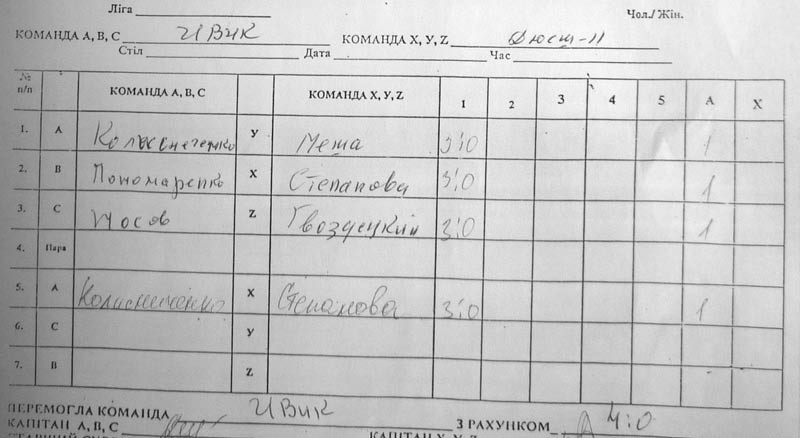 Ліга Чол./ Жін.
КОМАНДА А, В, С ИВИК КОМАНДА X, У, Z Дюсш-11
Стіл Дата Час
№ п/п КОМАНДА А, В, С КОМАНДА X, У, Z 1 2 3 4 5 А Х
1. А У Меша 3:0 1
2. В Пономаренко Х Степанова 3:0 1
3. С Носов Z Гвоздецкий 3:0 1
4. Пара
5. А Колисниченко Х Степанова 3:0 1
6. С У
7. В Z
ПЕРЕМОГЛА КОМАНДА ИВИК З РАХУНКОМ 4:0
КАПІТАН А, В, С КАПІТАН X, У, Z